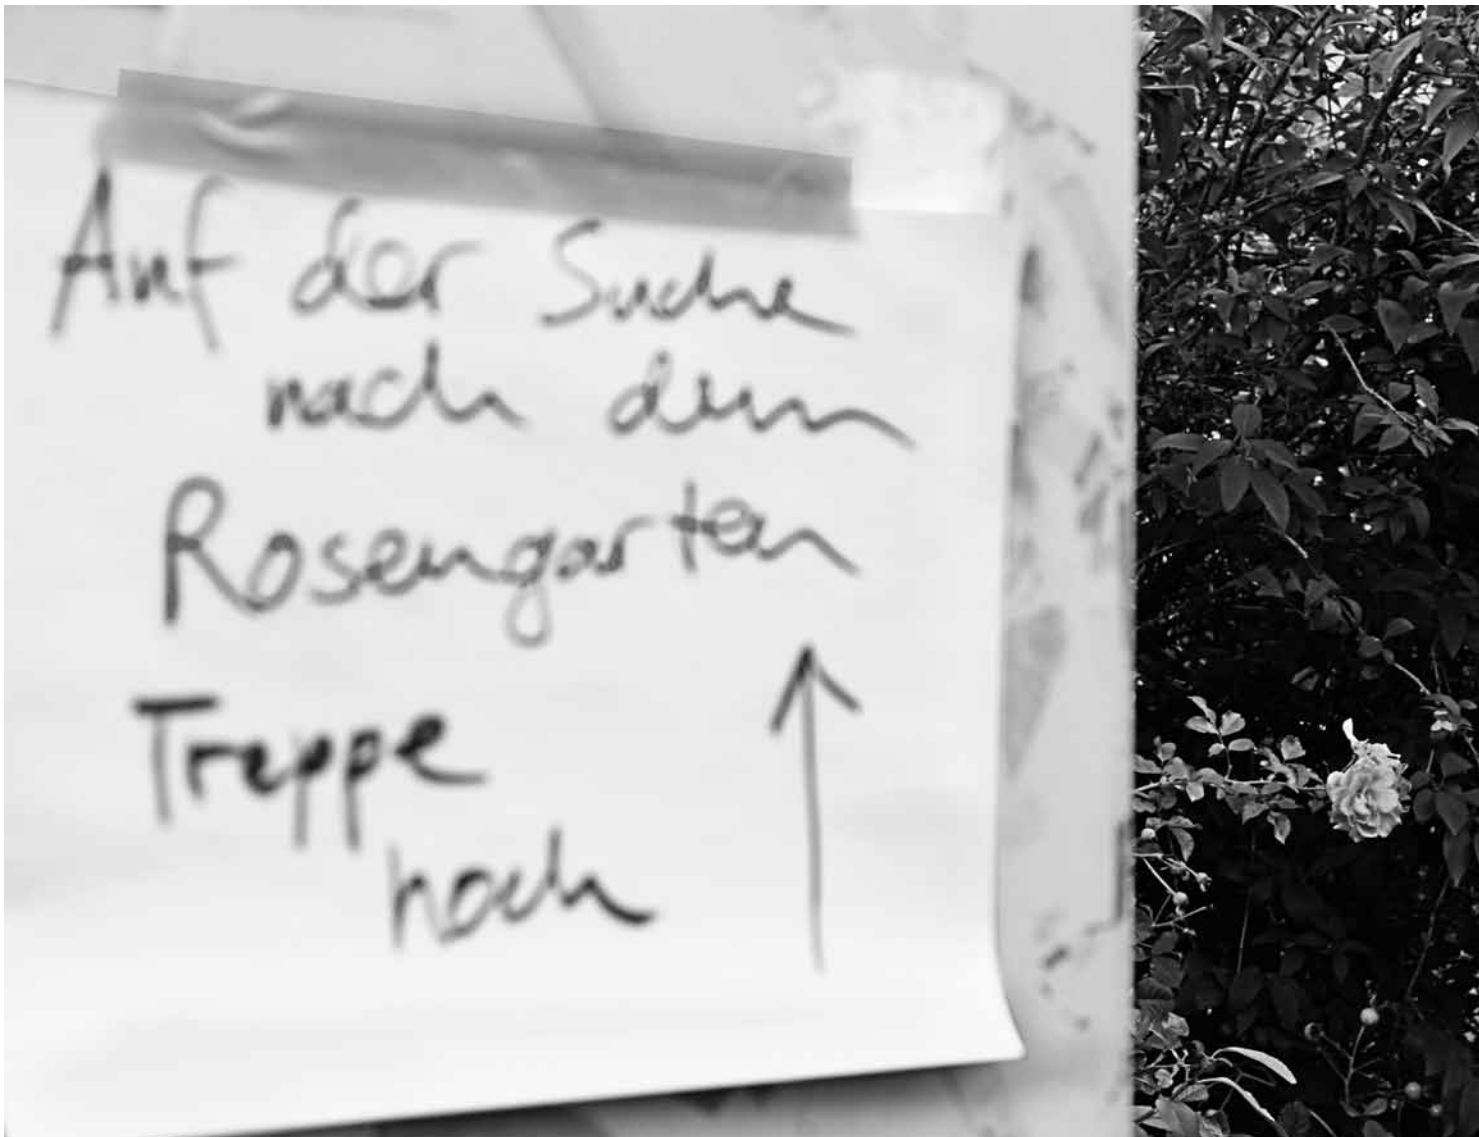 Auf der Suche
nach dem
Rosengarten
Treppe
hoch